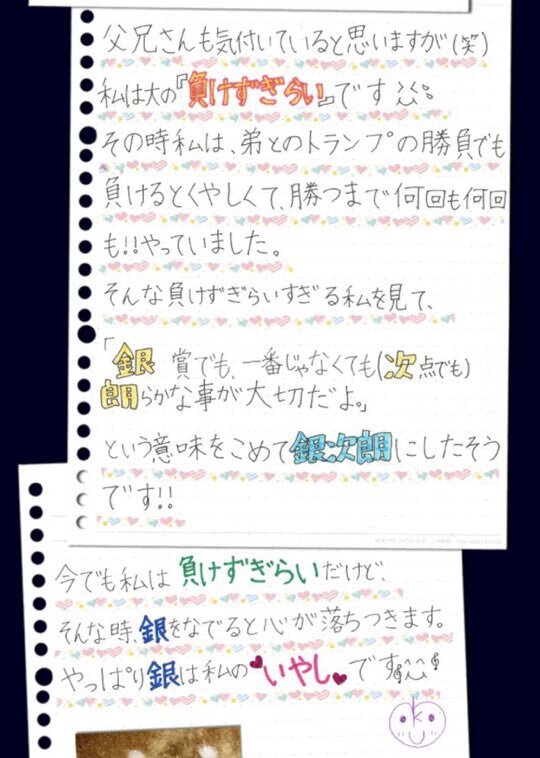 父兄さんも気付いていると思いますが(笑)
私は大の『負けずぎらい』です
その時私は、弟とのトランプの勝負でも
負けるとくやしくて、勝つまで何回も何回
も!!やっていました。
そんな負けずぎらいすぎる私を見て、
「銀賞でも、一番じゃなくても(次点でも)
朗らかな事が大切だよ。」
という意味をこめて銀次朗にしたそう
です!!
今でも私は負けずぎらいだけど、
そんな時、銀をなでると心が落ちつきます。
やっぱり銀は私の"いやし"です